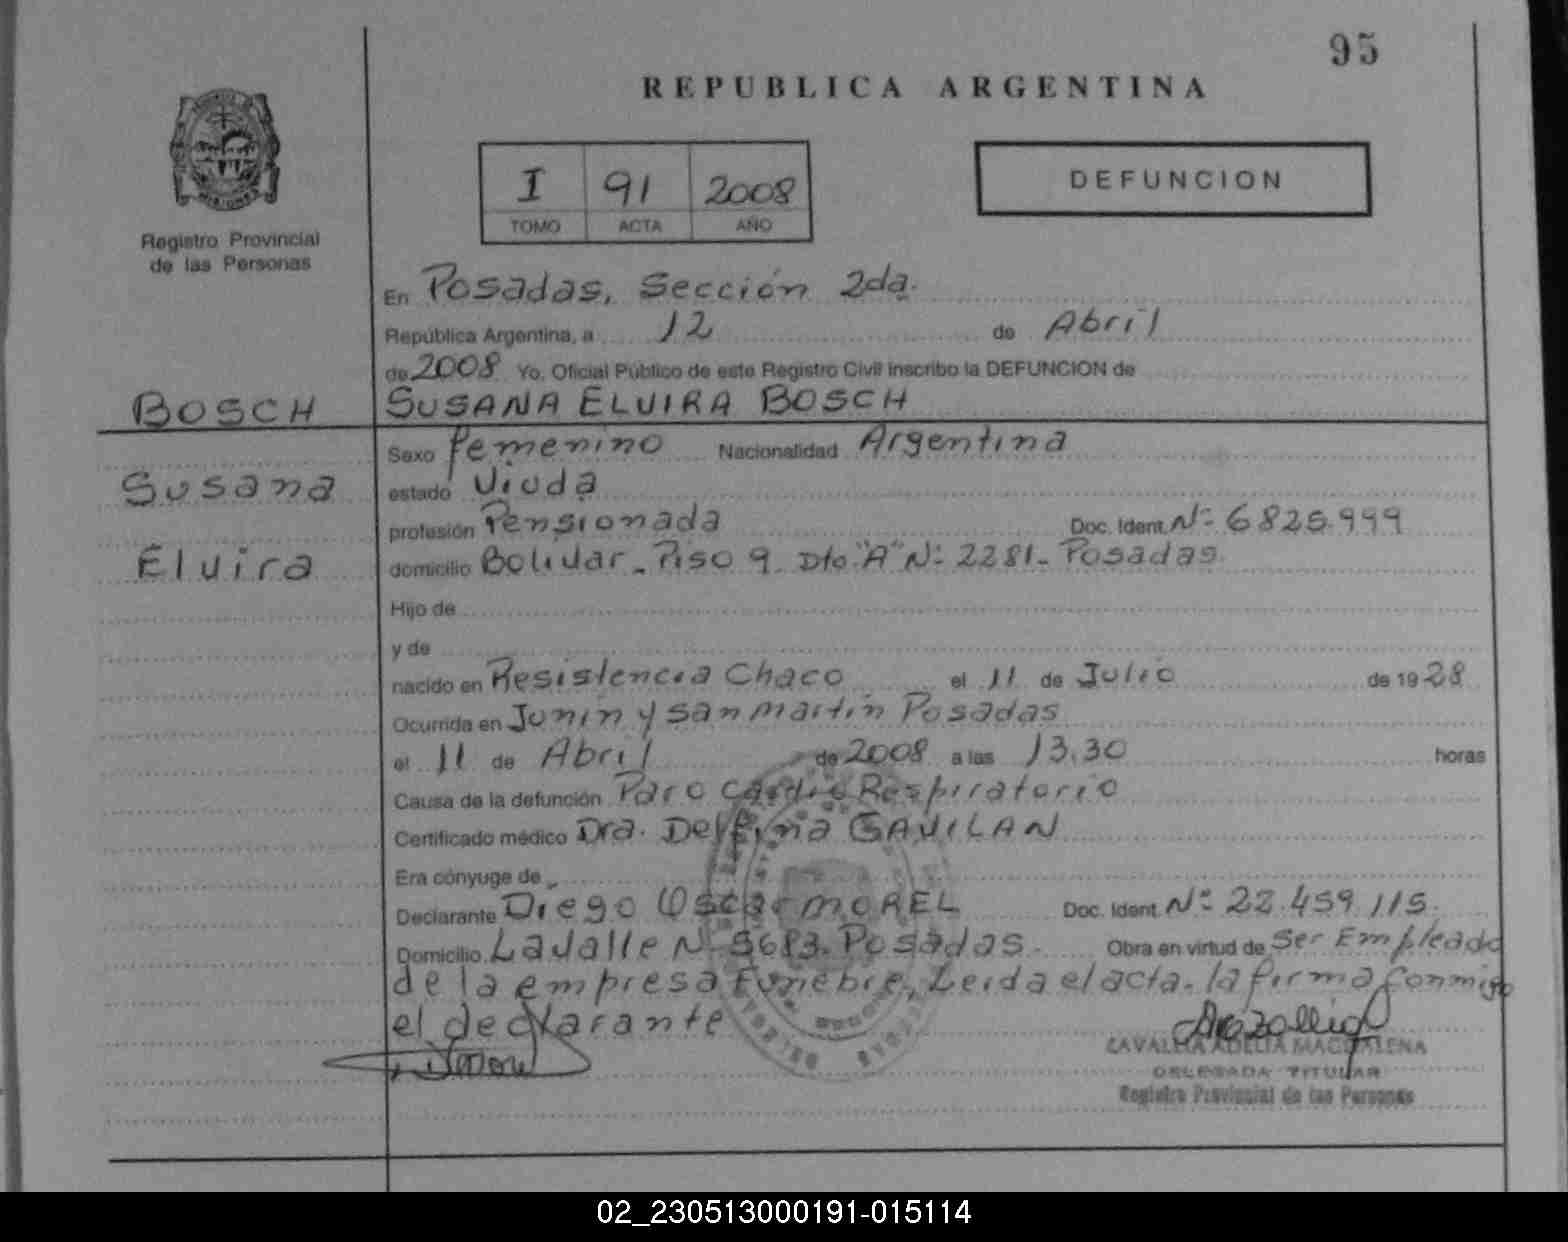 95
REPUBLICA ARGENTINA
I 91 2008
TOMO ACTA AÑO
DEFUNCION
Registro Provincial
de las Personas
En Posadas, Sección 2da.
República Argentina, a 12 de Abril
de 2008 Yo, Oficial Público de este Registro Civil inscribo la DEFUNCION de
BOSCH SUSANA ELVIRA BOSCH
Sexo femenino Nacionalidad Argentina
Susana estado Viuda
profesión Pensionada Doc. Ident. Nº 6825.999
Elvira domicilio Bolivar - Piso 9 Dto. "A" Nº 2281 - Posadas.
Hijo de
y de
nacido en Resistencia Chaco el 11 de Julio de 1928
Ocurrida en Junin y San Martín Posadas
el 11 de Abril de 2008 a las 13,30 horas
Causa de la defunción Paro Cardio Respiratorio
Certificado médico Dra. Delfina GAVILAN
Era cónyuge de -
Declarante Diego Oscar MOREL Doc. Ident. Nº 22.459.115.
Domicilio Lavalle Nº 5683. Posadas. Obra en virtud de Ser Empleado
de la empresa Funebre, Leida el acta, la firma conmigo
el declarante
ADELIA MAGDALENA
DELEGADA TITULAR
Registro Provincial de las Personas
02_230513000191-015114